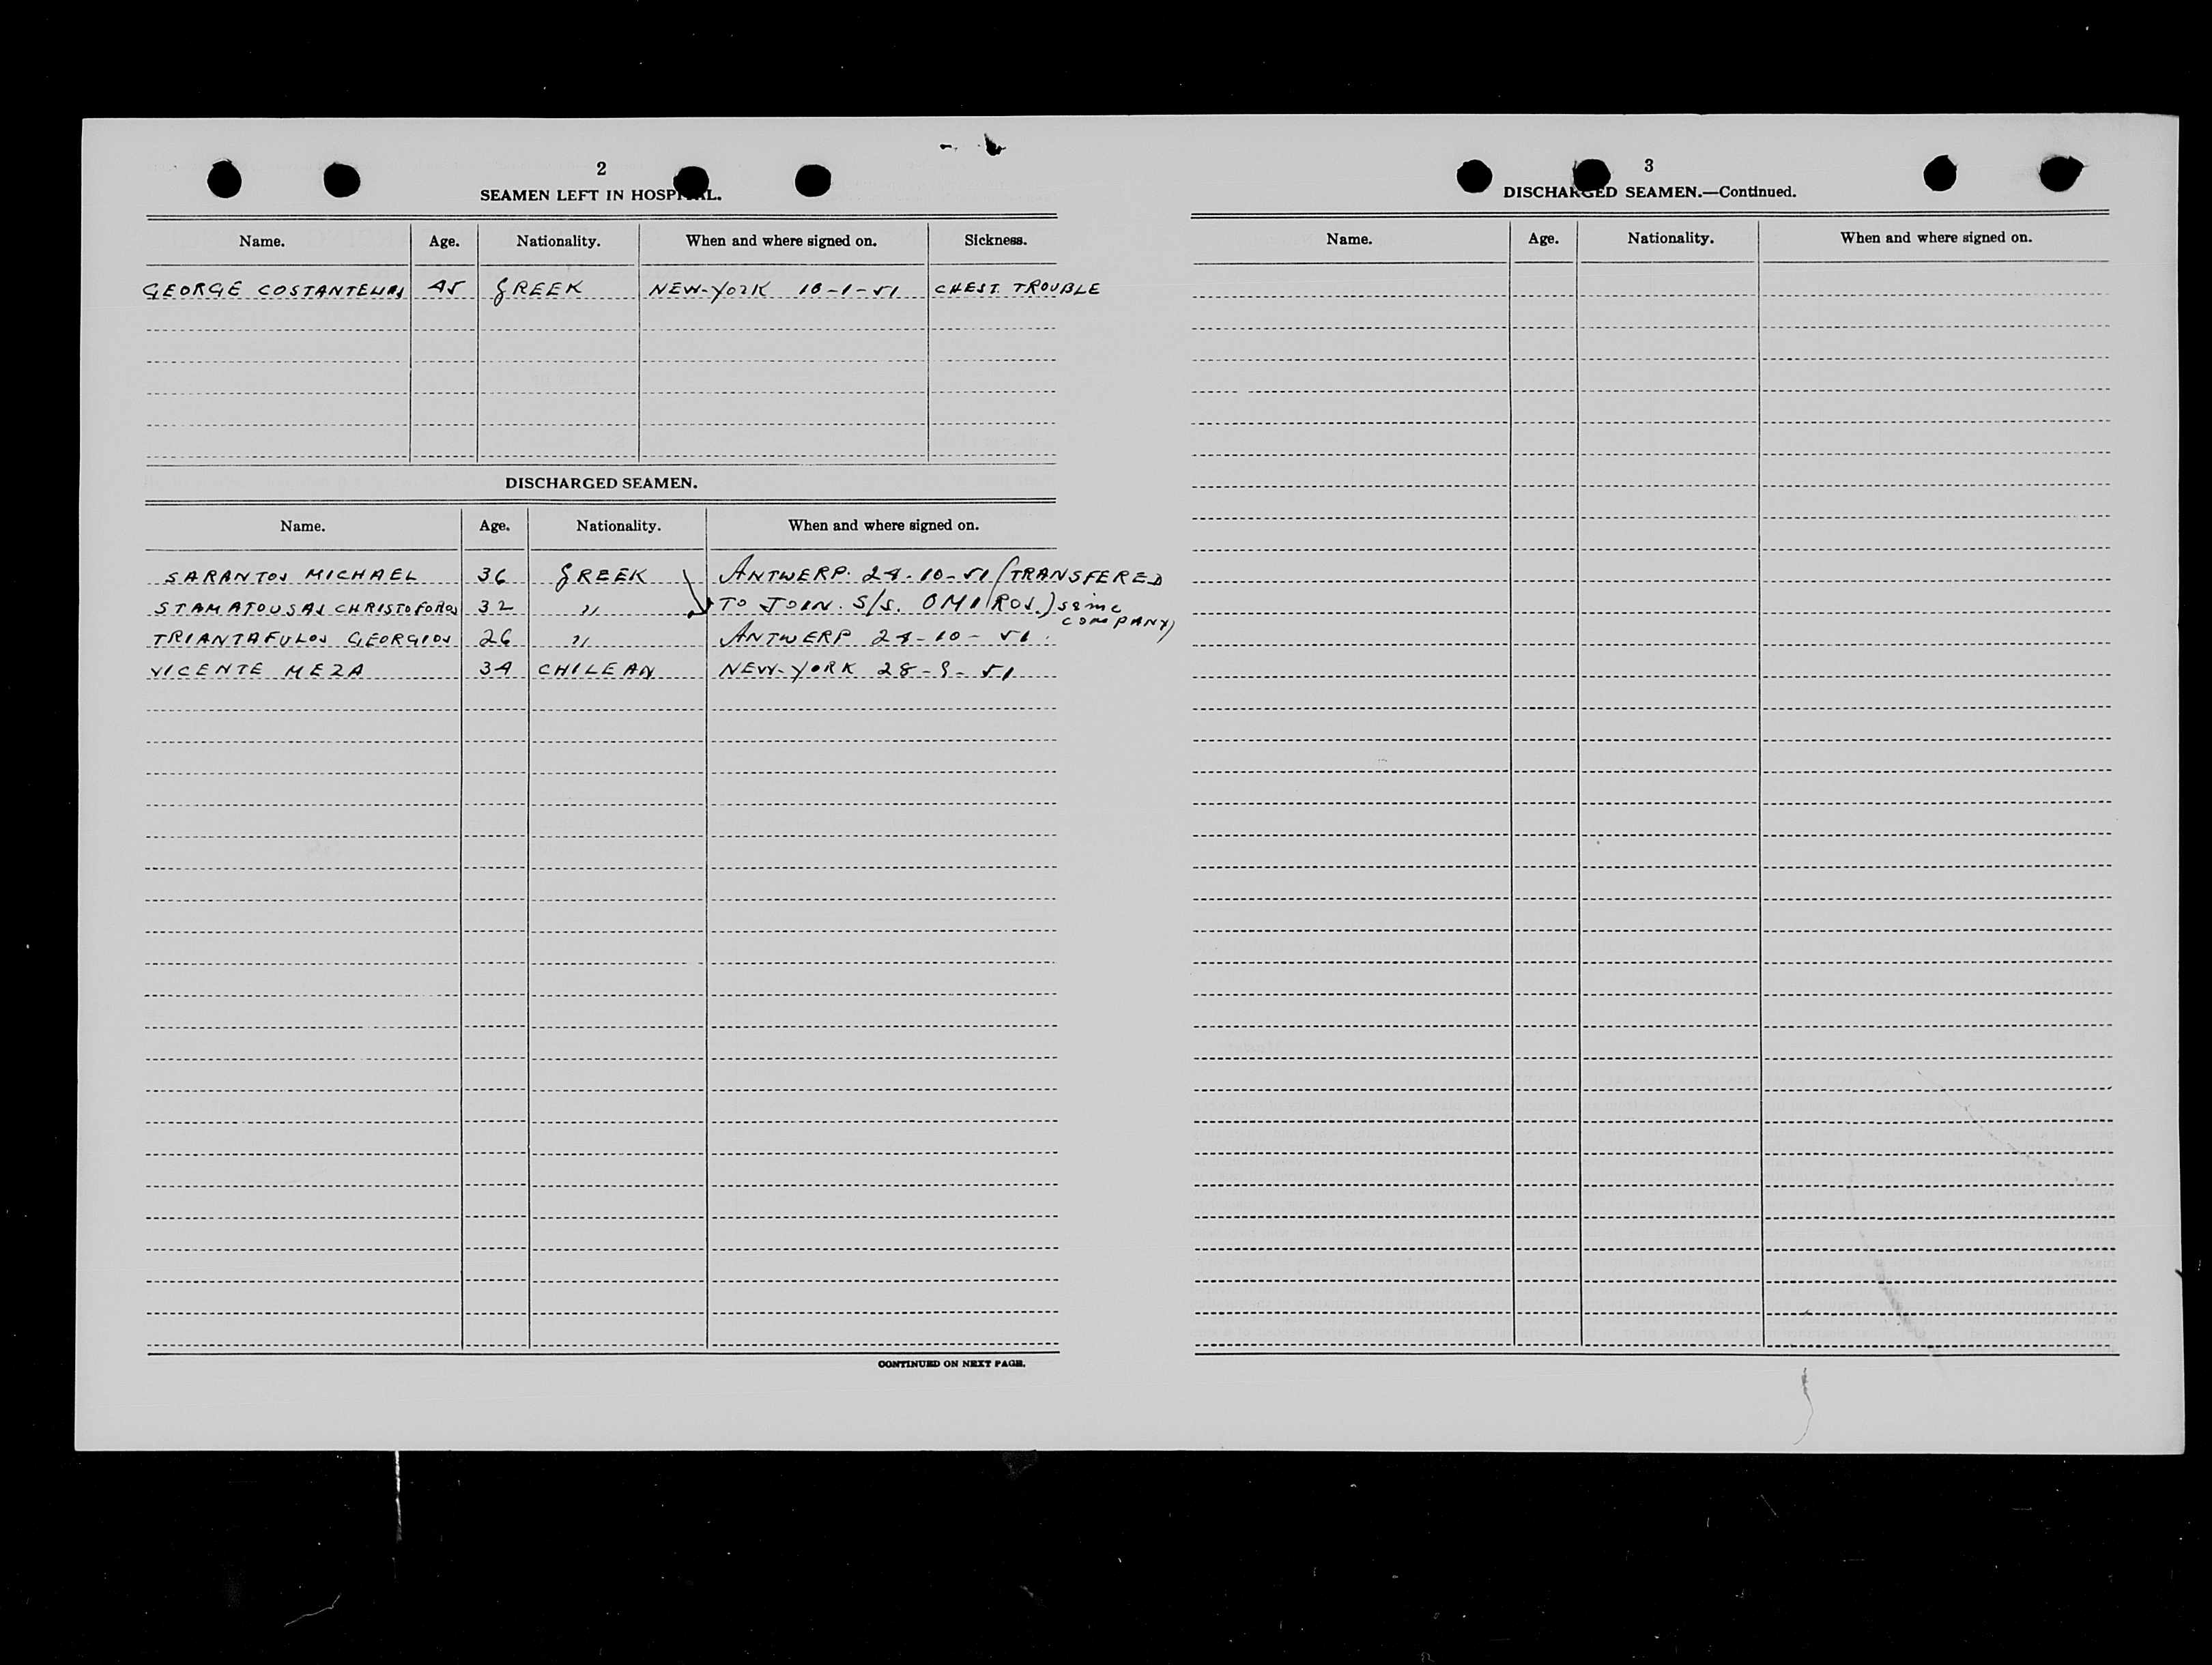 2
SEAMEN LEFT IN HOSPITAL.
Name. Age. Nationality. When and where signed on. Sickness.
GEORGE 45 GREEK NEW-YORK 10-1-51 CHEST TROUBLE
DISCHARGED SEAMEN.
Name. Age. Nationality. When and where signed on.
SARANTOS MICHAEL 36 GREEK ANTWERP. 24-10-51 (TRANSFERED
STAMATOUSAS CHRISTOFOROS 32 " TO JOIN. S/S. OMIROS.) same
COMPANY)
TRIANTAFULOS GEORGIOS 26 " ANTWERP 24-10-51.
VICENTE MEZA 34 CHILEAN NEW-YORK 28-9-51
CONTINUED ON NEXT PAGE.
3
DISCHARGED SEAMEN.—Continued.
Name. Age. Nationality. When and where signed on.